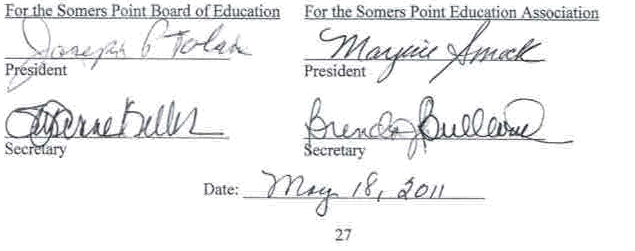 For the Somers Point Board of Education
Joseph P Tolan
President
Secretary
For the Somers Point Education Association
Marjorie Smock
President
Brenda
Secretary
Date: May 18, 2011
27